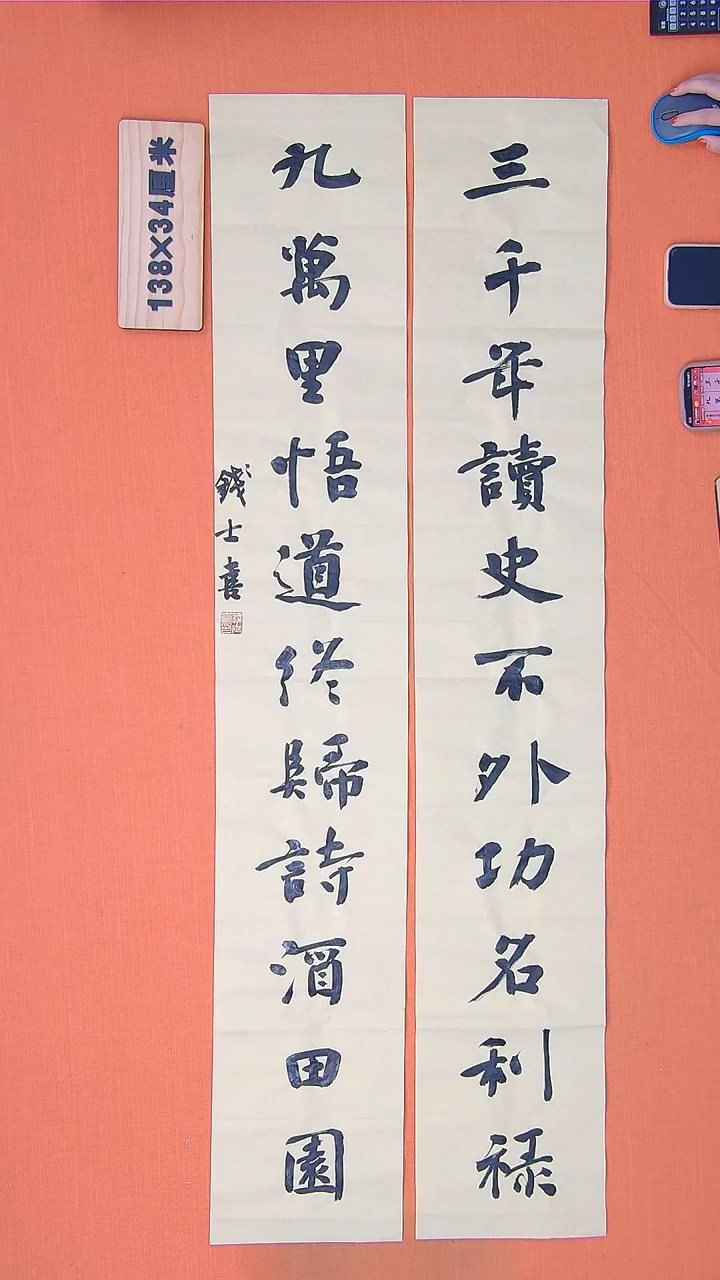 三千年讀史不外功名利禄
九萬里悟道終歸詩酒田園
錢士喜
138×34厘米